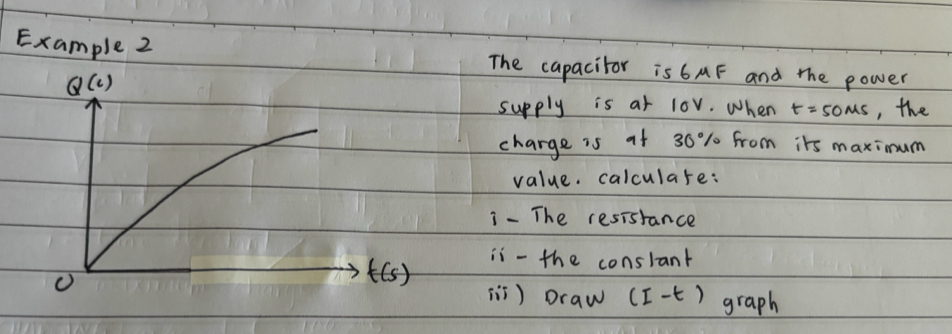 Example 2
Q(c)
O
t(s)
The capacitor is 6 μF and the power
supply is at 10V. When t = 50ms, the
charge is at 30% from its maximum
value. calculate:
i - The resistance
ii - the constant
iii) Draw (I-t) graph